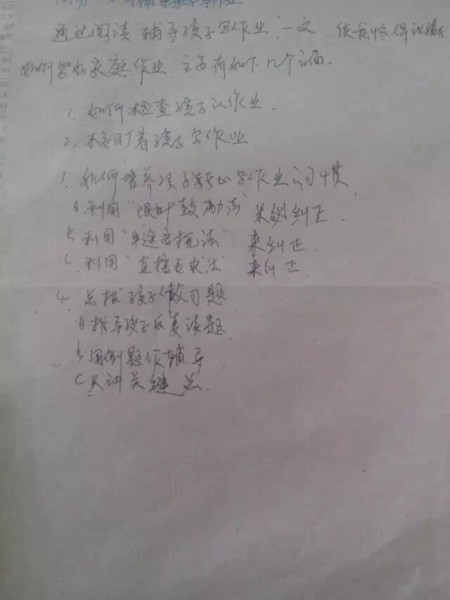 通过阅读"辅导孩子写作业"一文,使我懂得
如何 家庭作业,主要有如下几个方面.
1. 如何检查孩子的作业.
2. 着孩子写作业
3. 如何培养孩子 写作业的习惯
a. 利用"限时鼓励法"来 纠正.
b. 利用" 法" 来纠正.
c. 利用"直接要求法" 来纠正.
4. 孩子做习题
a 指导孩子反复读题.
b 用例题作辅导
c 只讲关键点.